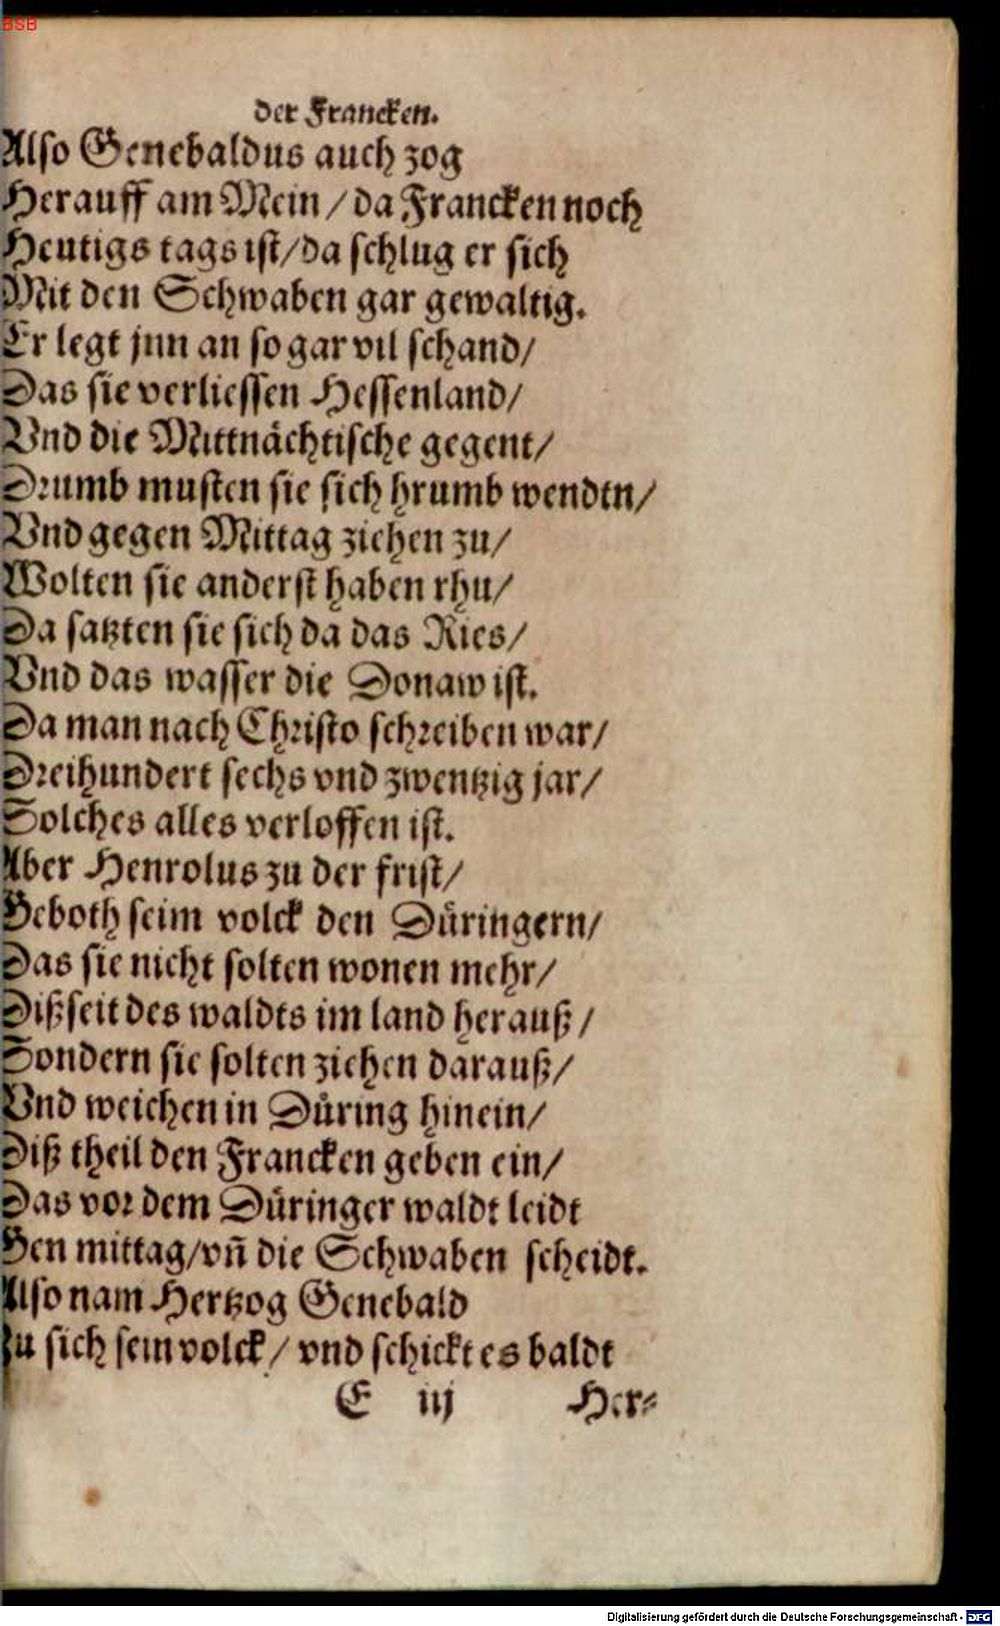 BSB
der Francken.
Also Genebaldus auch zog
Herauff am Mein / da Francken noch
Heutigs tags ist/da schlug er sich
Mit den Schwaben gar gewaltig.
Er legt jnn an so gar vil schand/
Das sie verliessen Hessenland/
Vnd die Mittnächtische gegent/
Drumb musten sie sich hrumb wendtn/
Vnd gegen Mittag ziehen zu/
Wolten sie anderst haben rhu/
Da satzten sie sich da das Ries/
Vnd das wasser die Donaw ist.
Da man nach Christo schreiben war/
Dreihundert sechs vnd zwentzig jar/
Solches alles verloffen ist.
Aber Henrolus zu der frist/
Geboth seim volck den Düringern/
Das sie nicht solten wonen mehr/
Dißseit des waldts im land herauß/
Sondern sie solten ziehen darauß/
Vnd weichen in Düring hinein/
Diß theil den Francken geben ein/
Das vor dem Düringer waldt leidt
Gen mittag/vñ die Schwaben scheidt.
Also nam Hertzog Genebald
Zu sich sein volck/ vnd schickt es baldt
E iij Her-
Digitalisierung gefördert durch die Deutsche Forschungsgemeinschaft - DFG